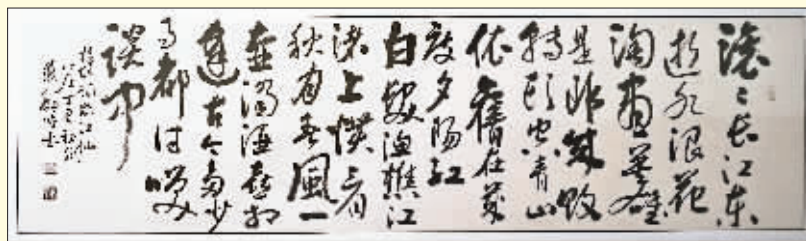 滚〻长江东
逝水浪花
淘尽英雄
是非成败
转头空青山
依舊在几
度夕阳红
白髮渔樵江
渚上惯看
秋月春風一
壶浊酒喜相
逢古今多少
事都付笑
谈中
临江仙